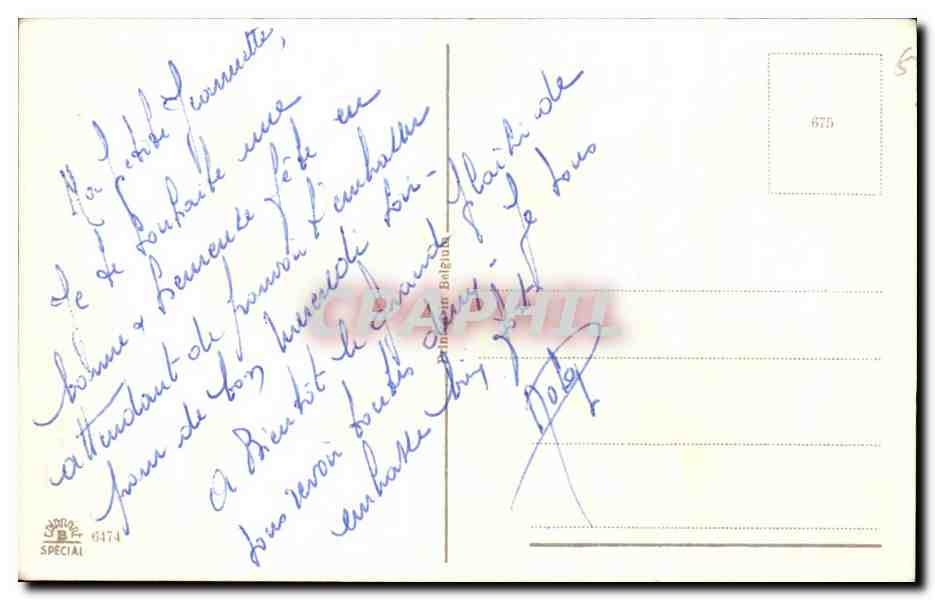 Ma petite Jeannette,
Je te souhaite une
bonne & heureuse fête en
attendant de pouvoir t'embrasser
pour de bon mercredi soir-
A Bientôt le grand plaisir de
vous revoir toutes Je vous
embrasse
675
5
Printed in Belgium
CPAPHIL
COLORPRINT
B
SPECIAL
6474